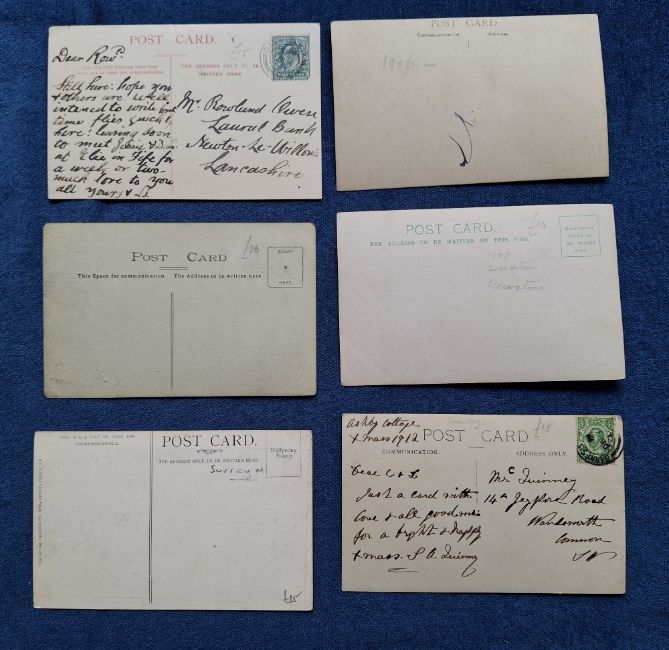 POST CARD.
£15
THE ADDRESS ONLY TO BE
WRITTEN HERE
Dear Row?.
Still here: hope you
& others are well
intended to write but
time flies quickly
here: leaving soon
to meet
at Elie in Fife for
a week or two-
much love to you
all yours
Mr. Rowland Owen
Laural Bank
Newton-Le-Willows
Lancashire
POST CARD
1906
POST CARD
£20
This Space for communication
The Address to be written here
STAMP
HERE
POST CARD.
THE ADDRESS TO BE WRITTEN ON THIS SIDE.
A
HALFPENNY
STAMP TO
BE PLACED
HERE
Coronation
Decorations
THIS SPACE MAY BE USED FOR
CORRESPONDENCE.
POST CARD.
THE ADDRESS ONLY TO BE WRITTEN HERE
Halfpenny
Stamp.
Sussex
£15
Ashby Cottage
Xmass 1912
POST CARD
£15
COMMUNICATION
ADDRESS ONLY
Dear C & L
Just a card with
love & all good
for a bright & happy
Xmass. S A Quinney
Quinney
14 Jeypore Road
Wandsworth
Common
SW